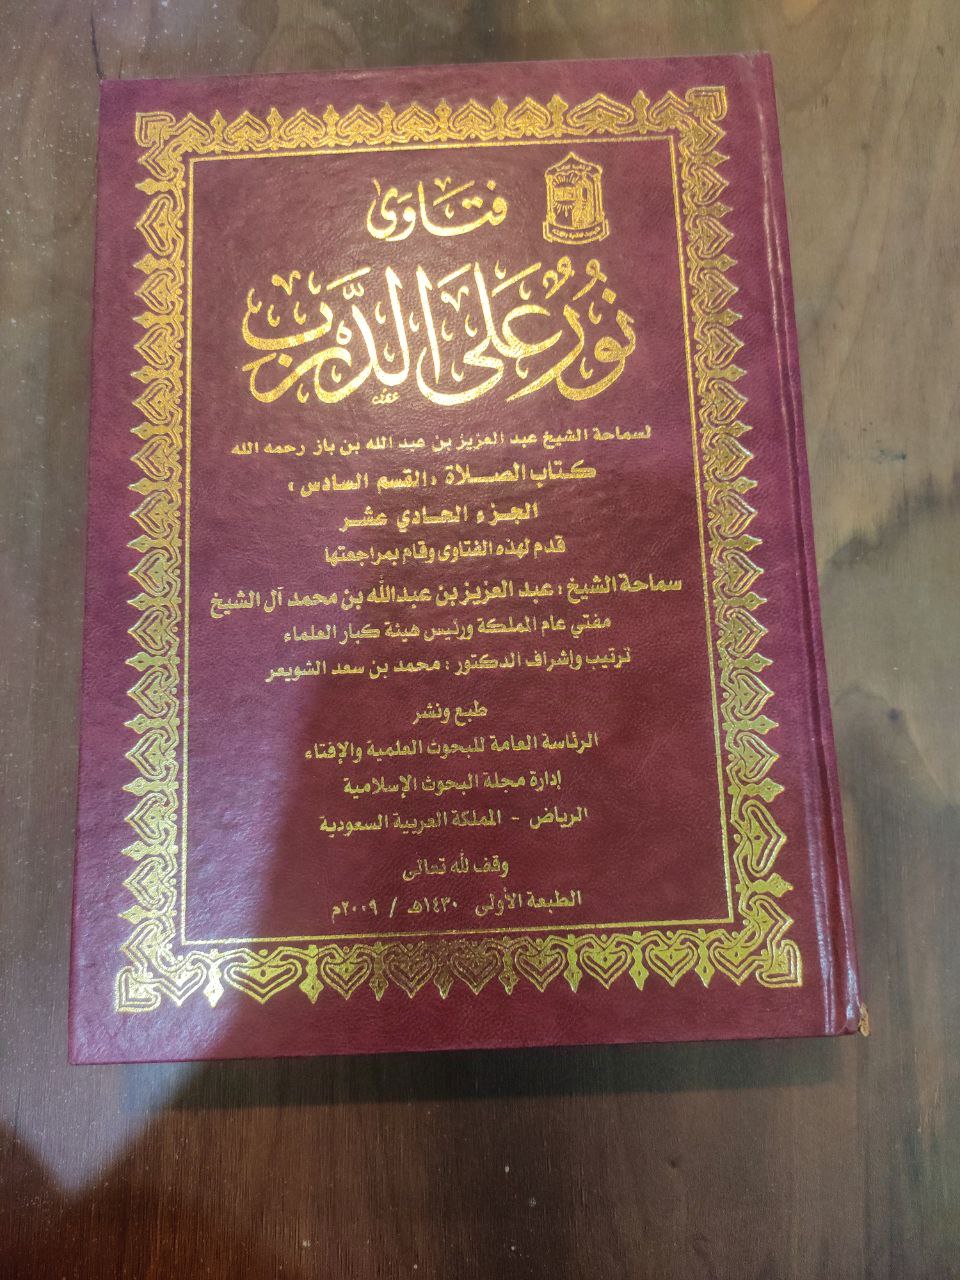 فتاوى
نُورٌ عَلَى الدَّرْبِ
لسماحة الشيخ عبد العزيز بن عبد الله بن باز رحمه الله
كتاب الصلاة «القسم السادس»
الجزء الحادي عشر
قدم لهذه الفتاوى وقام بمراجعتها
سماحة الشيخ : عبد العزيز بن عبدالله بن محمد آل الشيخ
مفتي عام المملكة ورئيس هيئة كبار العلماء
ترتيب وإشراف الدكتور : محمد بن سعد الشويعر
طبع ونشر
الرئاسة العامة للبحوث العلمية والإفتاء
إدارة مجلة البحوث الإسلامية
الرياض - المملكة العربية السعودية
وقف لله تعالى
الطبعة الأولى ١٤٣٠هـ / ٢٠٠٩م